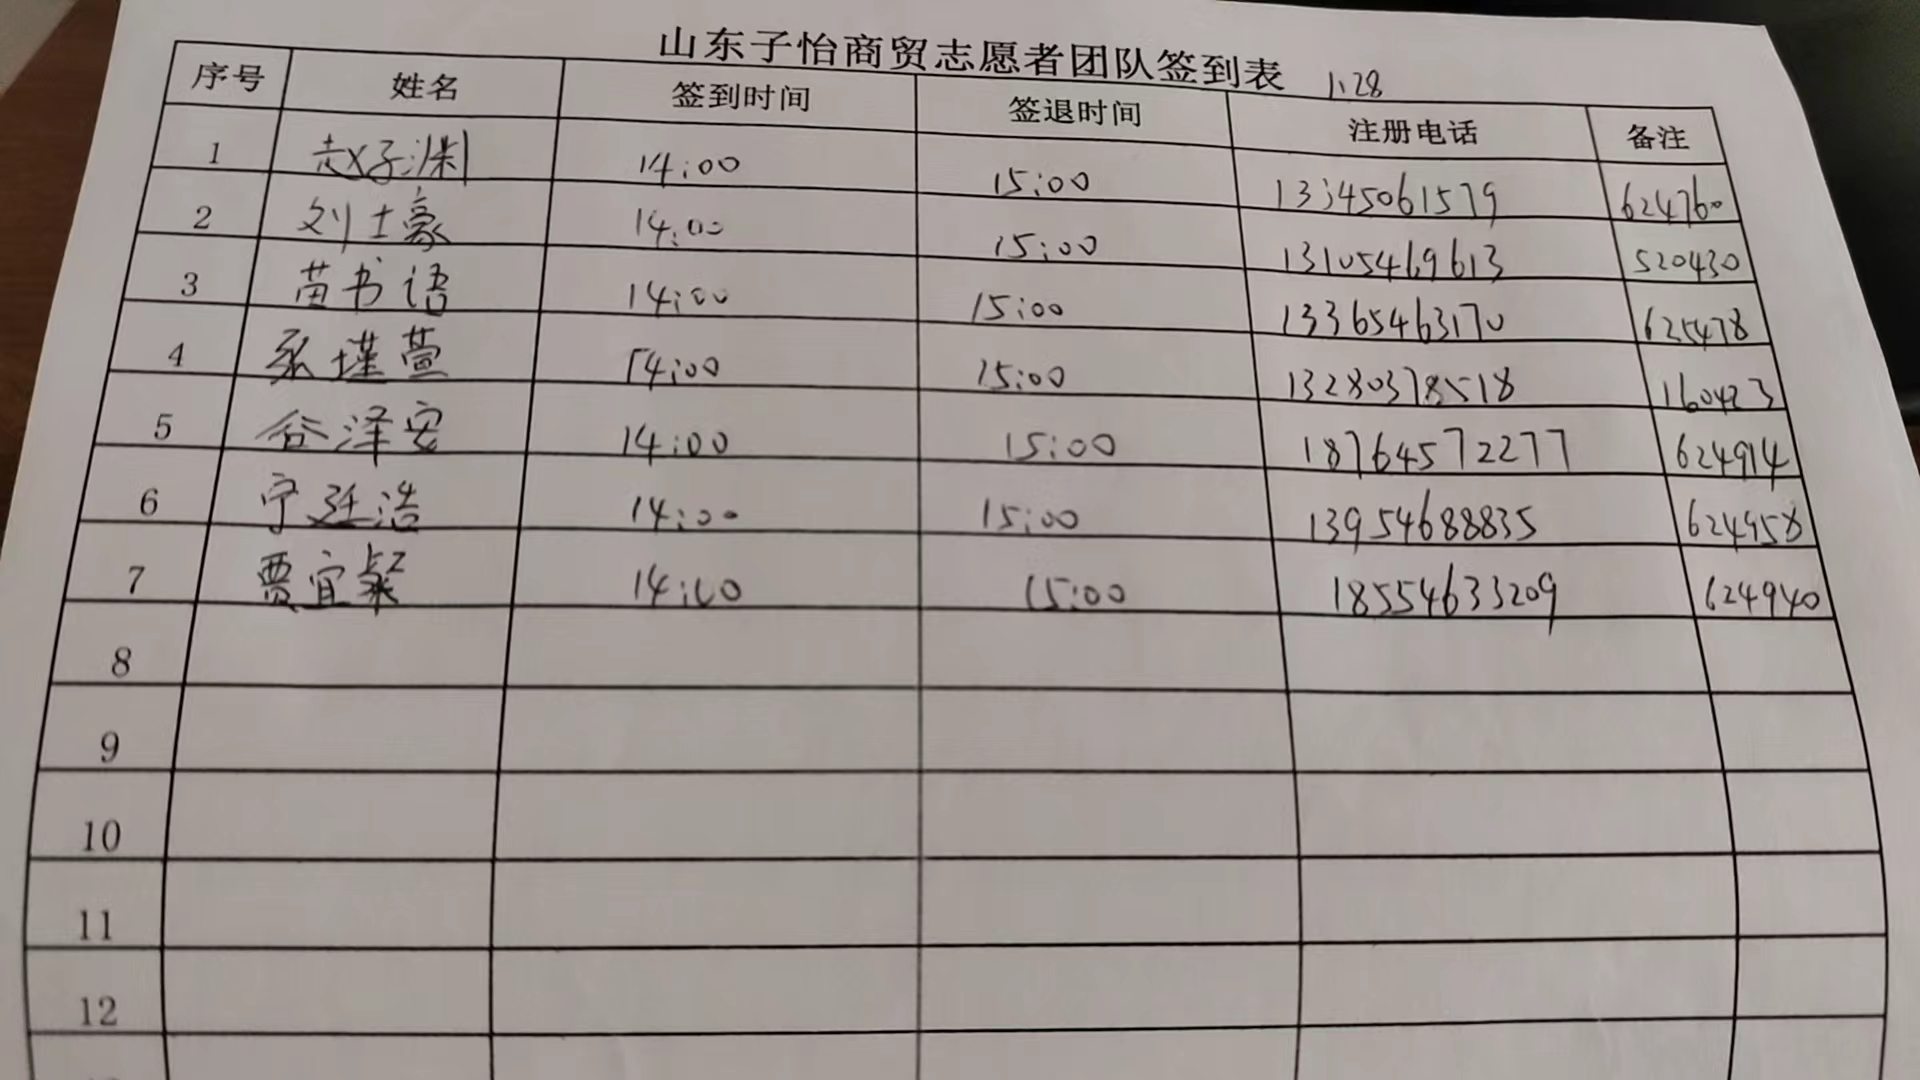 山东子怡商贸志愿者团队签到表 1.28
序号 姓名 签到时间 签退时间 注册电话 备注
1 赵子渊 14:00 15:00 13345061579 624760
2 刘士豪 14:00 15:00 13105469613 520430
3 苗书语 14:00 15:00 13365463170 625478
4 张瑾萱 14:00 15:00 13280378518 160423
5 谷泽安 14:00 15:00 18764572277 624914
6 宁廷浩 14:00 15:00 13954688835 624958
7 贾宜粲 14:00 15:00 18554633209 624940
8
9
10
11
12